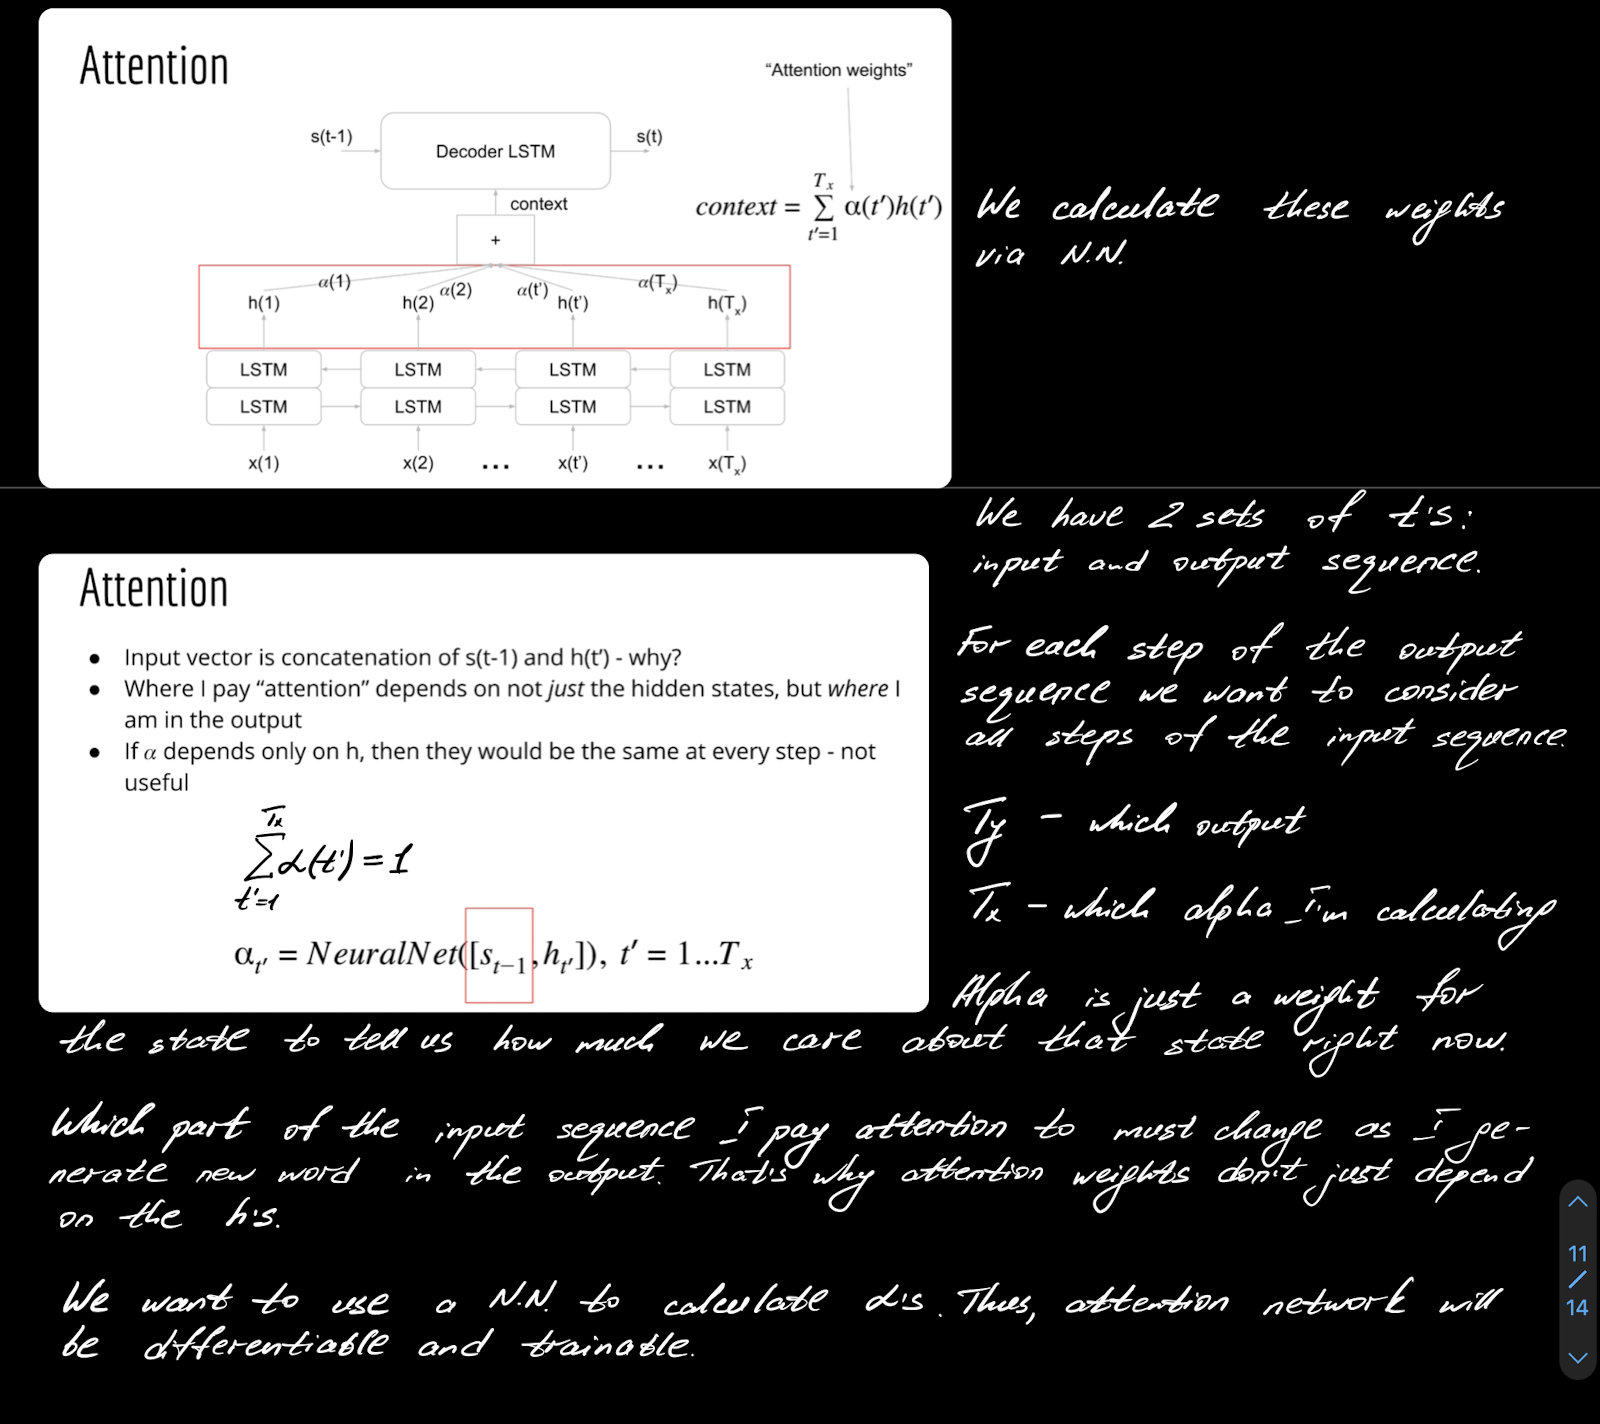 Attention
"Attention weights"
s(t-1)
Decoder LSTM
s(t)
context
context = Σ α(t′)h(t′)
T x
t′=1
+
α(1) α(2) α(t') α(Tx)
h(1) h(2) h(t') h(Tx)
LSTM LSTM LSTM LSTM
LSTM LSTM LSTM LSTM
x(1) x(2) ... x(t') ... x(Tx)
We calculate these weights
via N.N.
We have 2 sets of t's:
input and output sequence.
Attention
• Input vector is concatenation of s(t-1) and h(t') - why?
• Where I pay "attention" depends on not just the hidden states, but where I
am in the output
• If α depends only on h, then they would be the same at every step - not
useful
Tx
Σ α(t') = 1
t'=1
αt′ = NeuralNet([st−1, ht′]), t′ = 1...Tx
For each step of the output
sequence we want to consider
all steps of the input sequence.
Ty - which output
Tx - which alpha I'm calculating
Alpha is just a weight for
the state to tell us how much we care about that state right now.
Which part of the input sequence I pay attention to must change as I ge-
nerate new word in the output. That's why attention weights don't just depend
on the h's.
We want to use a N.N. to calculate α's. Thus, attention network will
be differentiable and trainable.
11
/
14